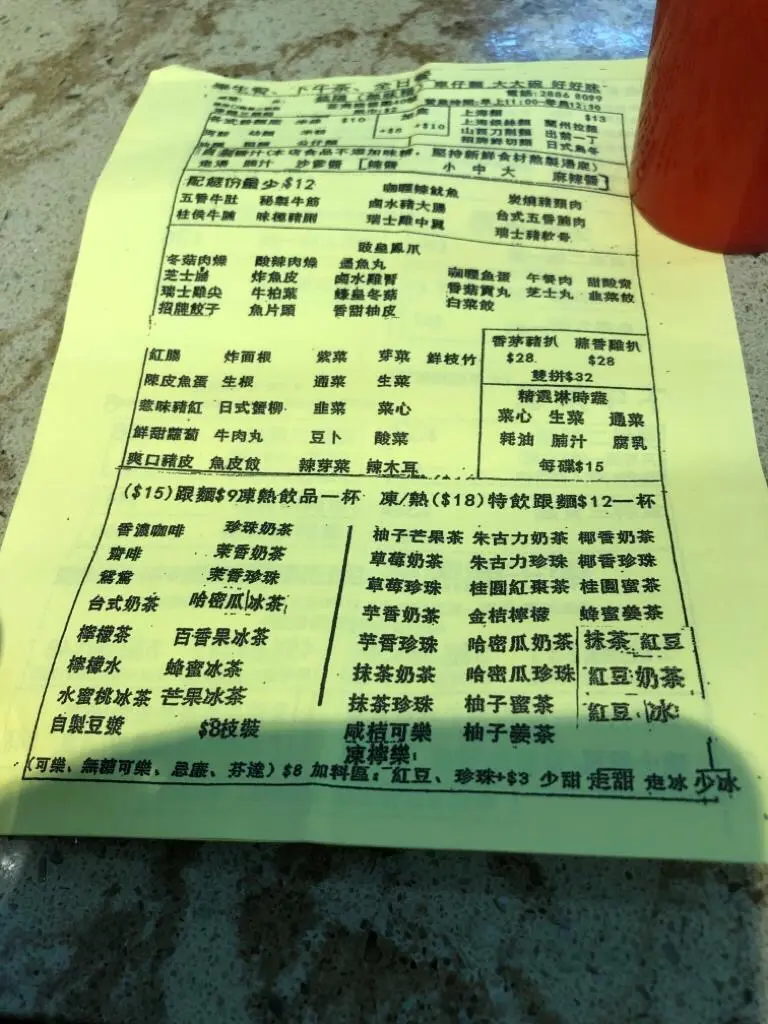 學生餐、下午茶、全日餐 車仔麵 大大碗 好好味
電話:2886 8099
營業時間:早上11:00-零晨12:30
$10 上海麵 $13
+$8 +$10 上海銀絲麵 蘭州拉麵
山西刀削麵 出前一丁
招牌鮮切麵 日式烏冬
幼麵 米粉
公仔麵
醬汁(本店食品不添加味精，堅持新鮮食材熬製湯底)
走湯 腩汁 沙爹醬 [辣醬 小 中 大 麻辣醬]
配餸份量少$12 咖喱辣魷魚 炭燒豬頸肉
五香牛肚 秘製牛筋 鹵水豬大腸 台式五香腩肉
柱侯牛腩 味穗豬脷 瑞士雞中翼 瑞士豬軟骨
豉皇鳳爪
冬菇肉燥 酸辣肉燥 墨魚丸 咖喱魚蛋 午餐肉 甜酸齋
芝士腸 炸魚皮 鹵水雞腎 香菇貢丸 芝士丸 韭菜餃
瑞士雞尖 牛柏葉 蠔皇冬菇 白菜餃
招牌餃子 魚片頭 香甜柚皮
紅腸 炸面根 紫菜 芽菜 鮮枝竹
陳皮魚蛋 生根 通菜 生菜
惹味豬紅 日式蟹柳 韭菜 菜心
鮮甜蘿蔔 牛肉丸 豆卜 酸菜
爽口豬皮 魚皮餃 辣芽菜 辣木耳
香茅豬扒 蒜香雞扒
$28 $28
雙拼$32
精選淋時蔬
菜心 生菜 通菜
蚝油 腩汁 腐乳
每碟$15
($15)跟麵$9凍熱飲品一杯 凍/熱($18)特飲跟麵$12一杯
香濃咖啡 珍珠奶茶
齋啡 茉香奶茶
鴛鴦 茉香珍珠
台式奶茶 哈密瓜冰茶
檸檬茶 百香果冰茶
檸檬水 蜂蜜冰茶
水蜜桃冰茶 芒果冰茶
自製豆漿 $8枝裝
柚子芒果茶 朱古力奶茶 椰香奶茶
草莓奶茶 朱古力珍珠 椰香珍珠
草莓珍珠 桂圓紅棗茶 桂圓蜜茶
芋香奶茶 金桔檸檬 蜂蜜姜茶
芋香珍珠 哈密瓜奶茶 抹茶紅豆
抹茶奶茶 哈密瓜珍珠 紅豆奶茶
抹茶珍珠 柚子蜜茶 紅豆冰
咸桔可樂 柚子姜茶
凍檸樂
(可樂、無糖可樂、忌廉、芬達) $8 加料區: 紅豆、珍珠+$3 少甜 走甜 走冰 少冰